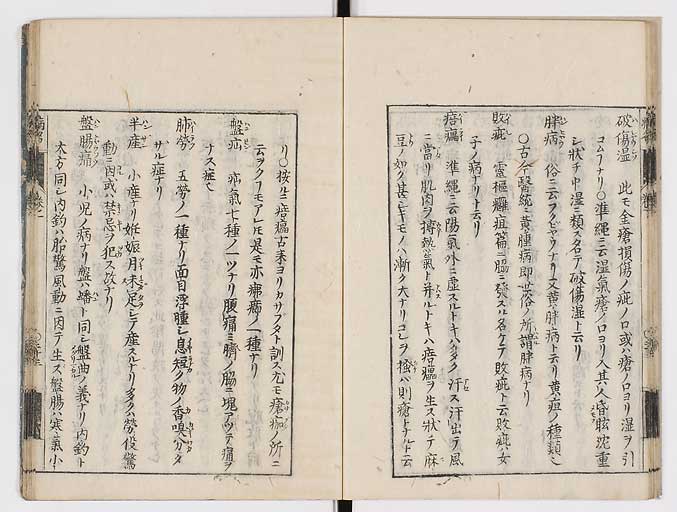 破傷湿 此モ金瘡損傷ノ疵ノ口或ハ瘡ノ口ヨリ湿ヲ引
コムナリ〇準縄ニ云湿氣瘡ノ口ヨリ入其人昏眩沈重
シ狀チ中湿ニ類ス名テ破傷湿ト云リ
胖病 俗ニ云フクビャウナリ又黄胖病ト云リ黄疸ノ種類ニ
〇古今醫統ニ黄腫病即世俗ノ所謂胖病ナリ
敗疵 靈樞癰疽篇ニ脇ニ發スル名ケテ敗疵ト云敗疵ハ女
子ノ病ナリト云リ
瘖㿔 準縄ニ云陽氣外ニ虚スルトキハ 汗ス汗出テ風
ニ當リ肌肉ヲ搏熱氣ト并ルトキハ瘖㿔ヲ生ス狀テ麻
豆ノ如ク其シキモノハ漸ク大ナリコレヲ搔ハ則瘡トナルト云
リ〇按ルニ瘖㿔古來ヨリカリブタト訓ス尤モ瘡痂ノ所ニ
云ヲクフモアレ𪜈是モ亦 ノ一種ナリ
盤疝 疝氣七種ノ一ツナリ腹痛ミ臍ノ脇ニ塊アツテ痛ヲ
ナス症
肺勞 五勞ノ一種ナリ面目浮腫シ息短ク物ノ香嗅分タ
サル症ナリ
半産 小産ナリ妊娠月未足シテ産スルナリ多クハ勞役驚
動ニ因或ハ禁忌ヲ犯ス故ナリ
盤腸痛 小児ノ病ナリ盤ハ蟠ト同シ盤曲ノ義ナリ内釣ト
大方同シ内釣ハ胎驚風動ニ因テ生ス盤腸ハ寒氣小